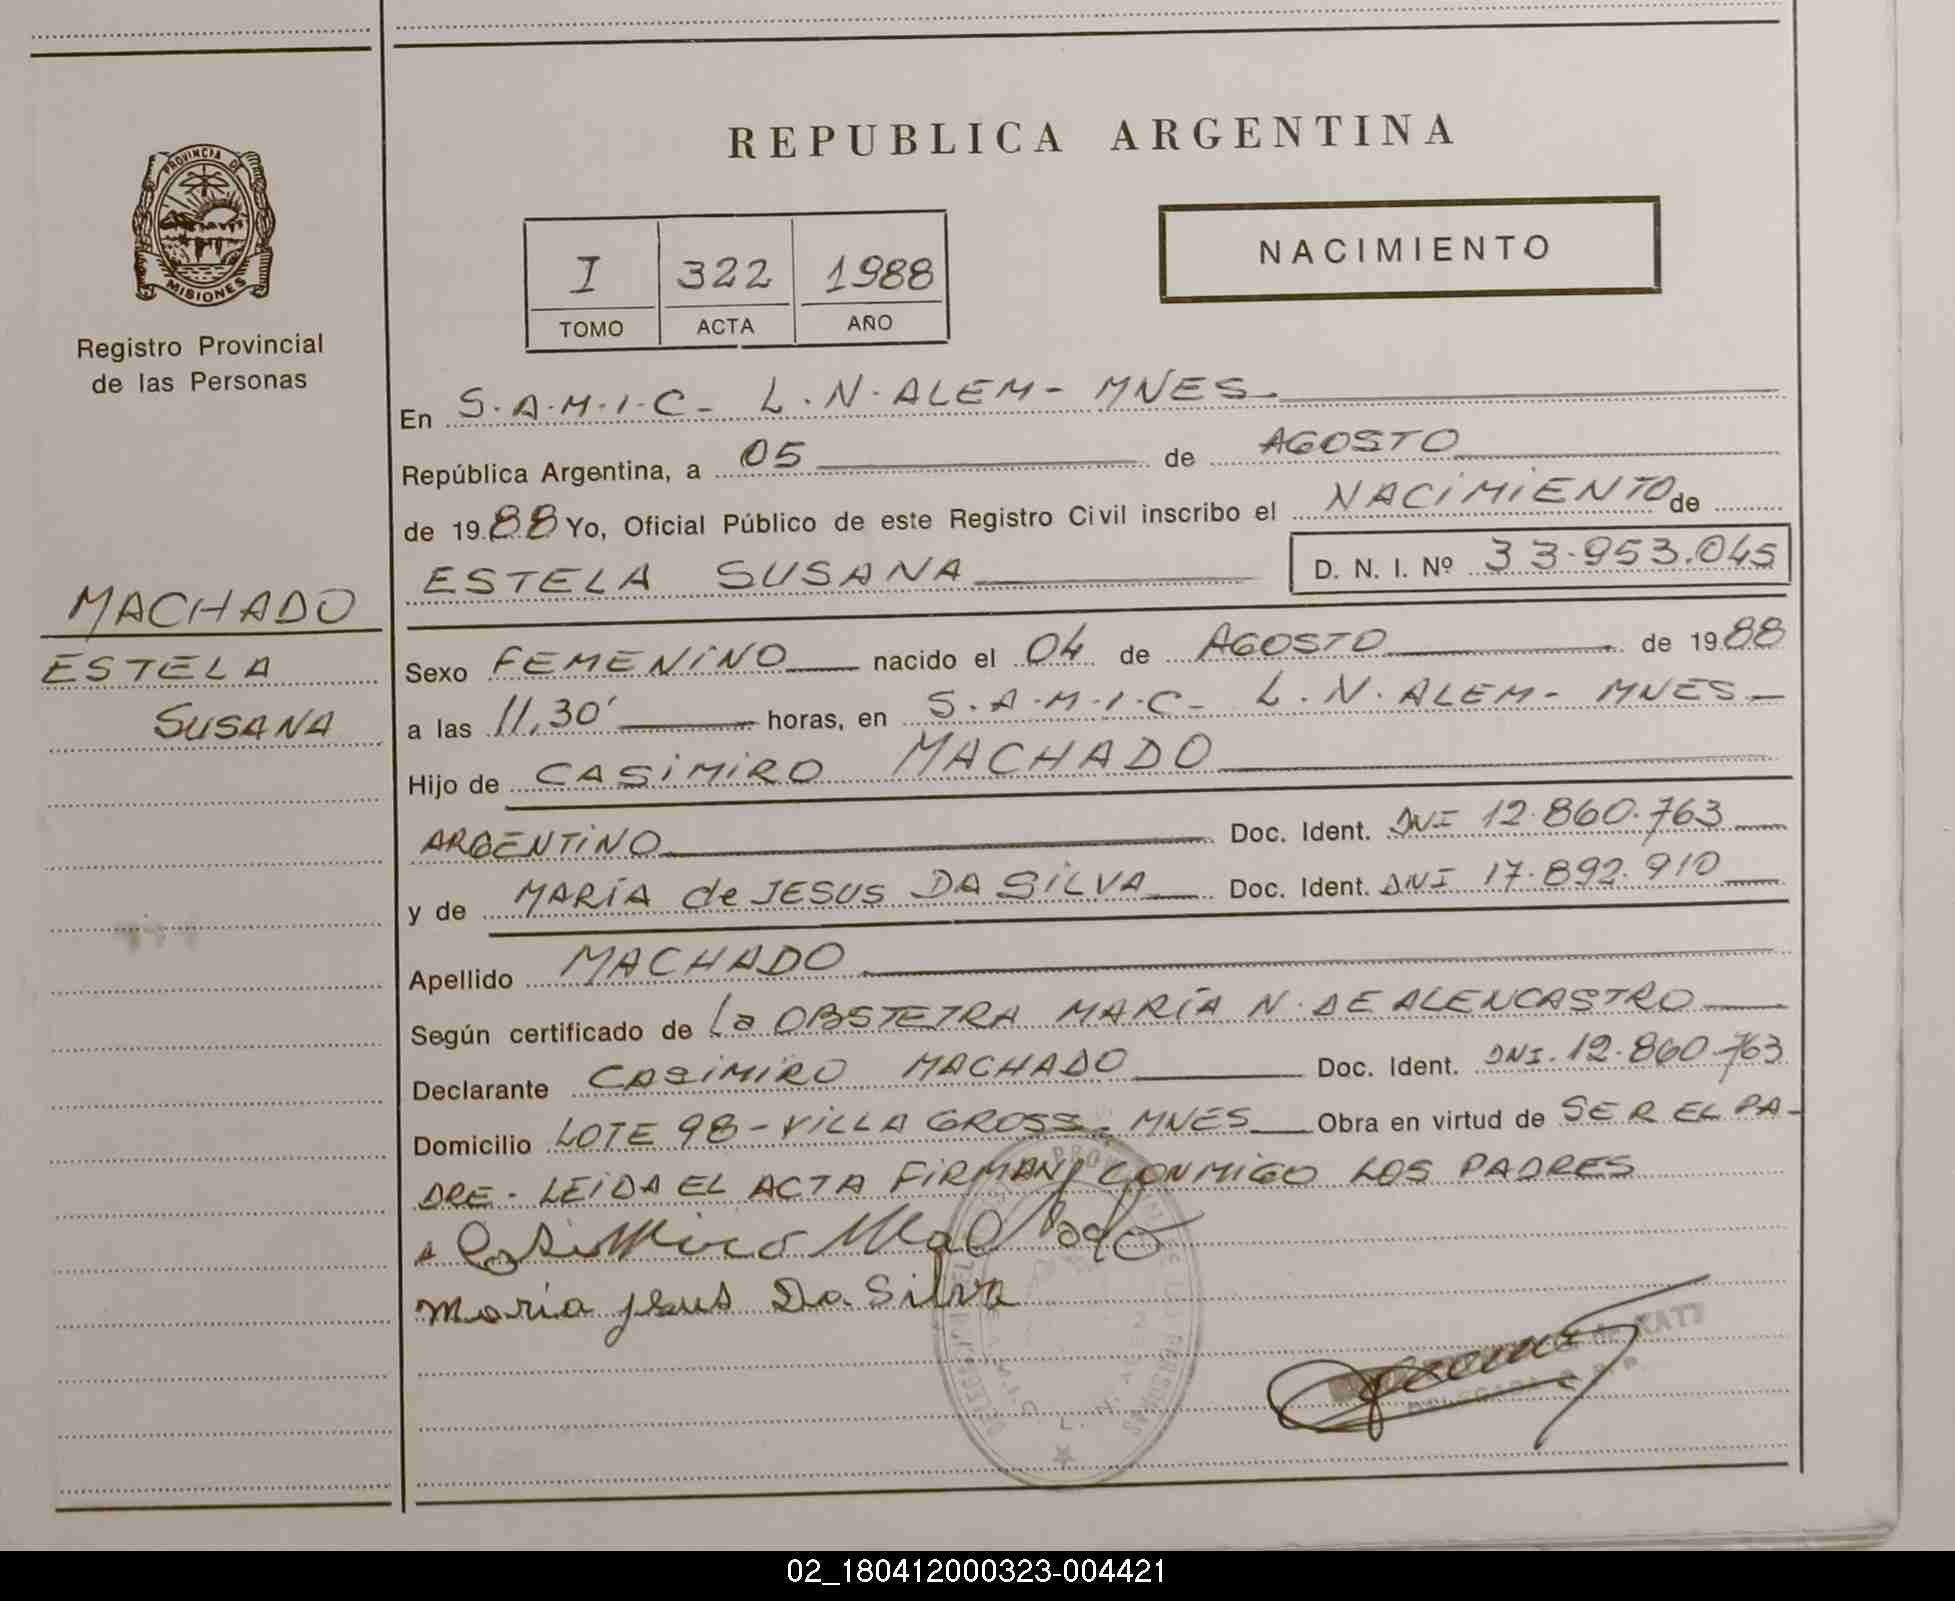 PROVINCIA DE
MISIONES
Registro Provincial
de las Personas
MACHADO
ESTELA
SUSANA
REPUBLICA ARGENTINA
I 322 1988
TOMO ACTA AÑO
NACIMIENTO
En S.A.M.I.C- L.N.ALEM- MNES
República Argentina, a 05 de AGOSTO
de 1988 Yo, Oficial Público de este Registro Civil inscribo el NACIMIENTO de
ESTELA SUSANA D. N. I. Nº 33.953.045
Sexo FEMENINO nacido el 04 de AGOSTO de 1988
a las 11,30' horas, en S.A.M.I.C- L.N.ALEM- MNES-
Hijo de CASIMIRO MACHADO
ARGENTINO Doc. Ident. DNI 12.860.763
y de MARÍA de JESUS DA SILVA Doc. Ident. DNI 17.892.910
Apellido MACHADO
Según certificado de La OBSTETRA MARÍA N. DE ALENCASTRO
Declarante CASIMIRO MACHADO Doc. Ident. DNI. 12.860.763
Domicilio LOTE 98-VILLA GROSS- MNES Obra en virtud de SER EL PA-
DRE- LEIDA EL ACTA FIRMAN CONMIGO LOS PADRES
Casimiro Machado
Maria Jesus Da Silva
DELEGADA R.P.P.
02_180412000323-004421